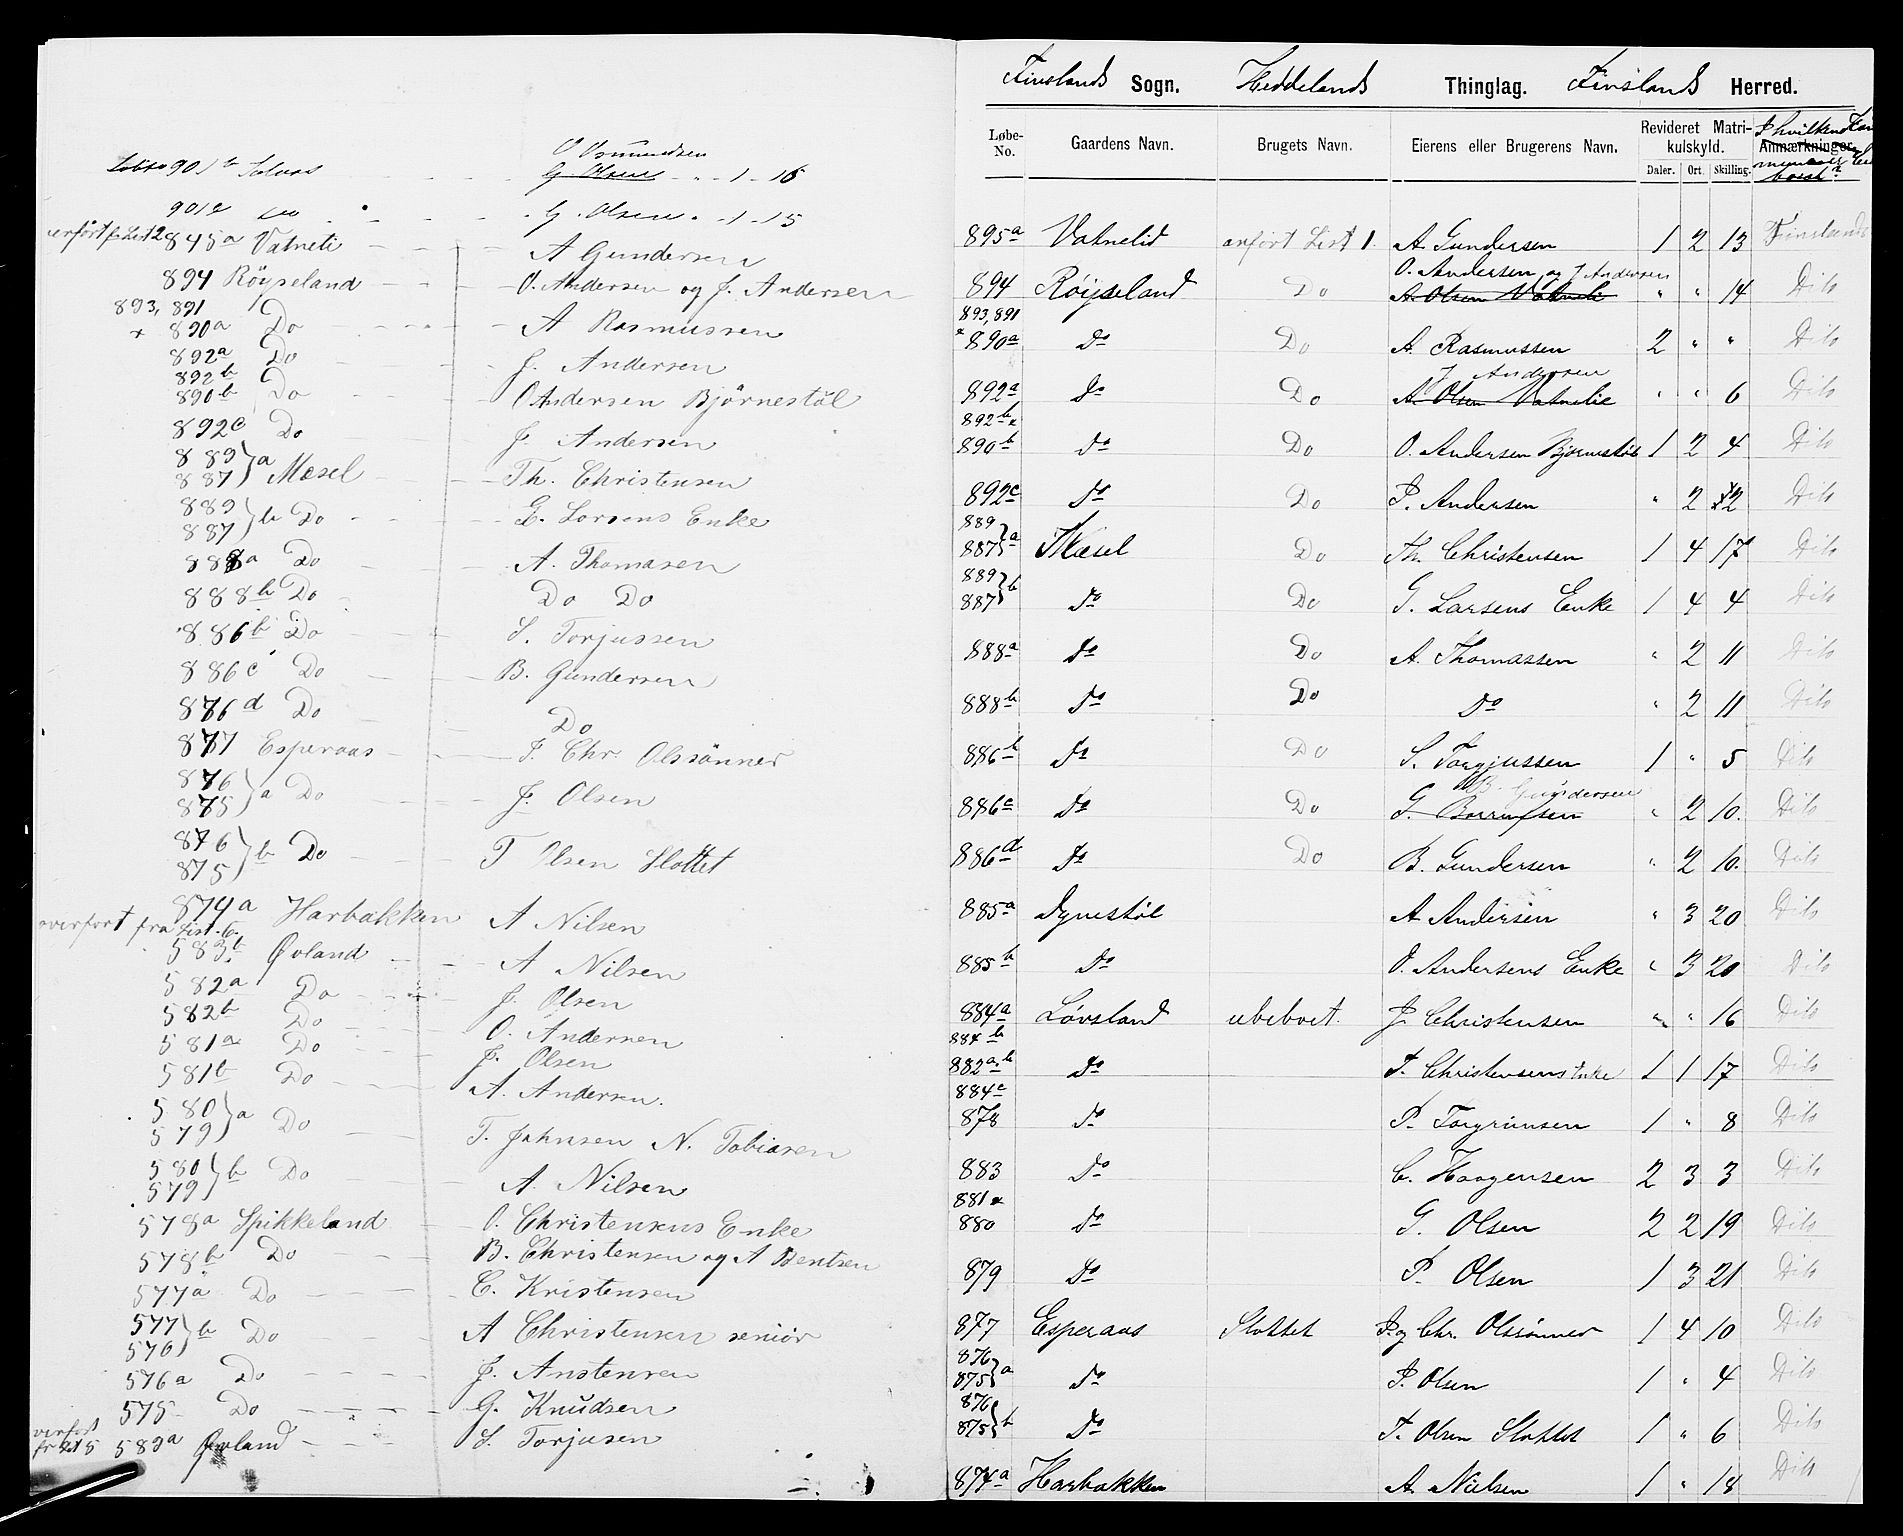 O Osmundsen
901b Solaas - - - G. Olsen - " - 1 - 16
901c Do - - - G. Olsen " - 1 - 15
overført fr List 2 845a Vatneli - - - A Gundersen
894 Röyseland - - - O. Andersen og J. Andersen
893, 891
* 890a Do - - - A Rasmussen
892a Do - - - J. Andersen
892b
890b Do - - - O Andersen Björnestöl
892c Do - - - J. Andersen
889
887 } a Mæsel - - - Th. Christensen
889
887 } b Do - - - G. Larsens Enke
888a Do - - - A. Thomasen
888b Do - Do Do
886b Do - - - S. Torjussen
886c Do - - - B. Gundersen
876d Do - Do
877 Esperaas - - - P. Chr. Olssönner
876
875 } a Do - - - J. Olsen
876
875 } b Do - - - T Olsen Slottet
874a Harbakken A Nilsen
overfört fra List. 6.
583b Øvland - - - A Nilsen
582a Do - - - J. Olsen
582b Do - - O. Andersen
581a Do - - J. Olsen
581b Do - - - A. Andersen.
580
579 } a Do - - - T. Jahnsen N. Tobiasen
580
579 } b Do - - - A. Nilsen
578a Spikkeland - O. Christensens Enke
578b Do - - - B. Christensen og A Bentsen
577a Do - - - C. Kristensen
577
576 } b Do - - - A Christensen seniör
576a Do - - - J. Anstensen
575 Do - - - G. Knudsen
overfört fr List 5 583a Øvland - - - S. Torjusen
Finslands Sogn. Heddelands Thinglag. Finslands Herred.
Løbe-No. Gaardens Navn. Brugets Navn. Eierens eller Brugerens Navn. Revideret Matrikulskyld. Anmærkninger.
Daler. Ort. Skilling.
895a Vatnelid anført List 1. A. Gundersen 1 2 13 Finslands
O. Andersen og J Andersen
894 Röyseland Do A. Olsen Vatnelie " " 14 Dito
893, 891
* 890a do Do A. Rasmussen 2 " " Dito
J Andersen
892a do Do A. Olsen Vatnelie " " 6 Dito
892b
890b do Do O. Andersen Bjørnestøl 1 2 4 Dito
892c do Do P. Andersen " 2 2 Dito
889
887 } a Mæsel Do Th. Christensen 1 4 17 Dito
889
887 } b do Do G. Larsens Enke 1 4 4 Dito
888a do Do A. Thomassen " 2 11 Dito
888b do Do do " 2 11 Dito
886b do Do S. Torgjussen 1 " 5 Dito
B. Gundersen
886c do Do G. " 2 10. Dito
886d do Do B. Gundersen " 2 10. Dito
885a Dynestöl A Andersen " 3 20 Dito
885b do O. Andersens Enke " 3 20 Dito
884a Løvsland ubeboet. J. Christensen " " 16 Dito
884b
882a,b do T. Christensens Enke 1 1 17 Dito
884c
878 do P. Torgrimsen 1 " 8 Dito
883 do C. Haagensen 2 3 3 Dito
881 &
880 do G. Olsen 2 2 19 Dito
879 do P. Olsen 1 3 21 Dito
877 Esperaas Slottet P. og Chr. Olssönner 1 4 10 Dito
876
875 } a do P. Olsen 1 " 4 Dito
876
875 } b do T. Olsen Slottet 1 " 6 Dito
874a Harbakken A. Nielsen 1 " 18 Dito